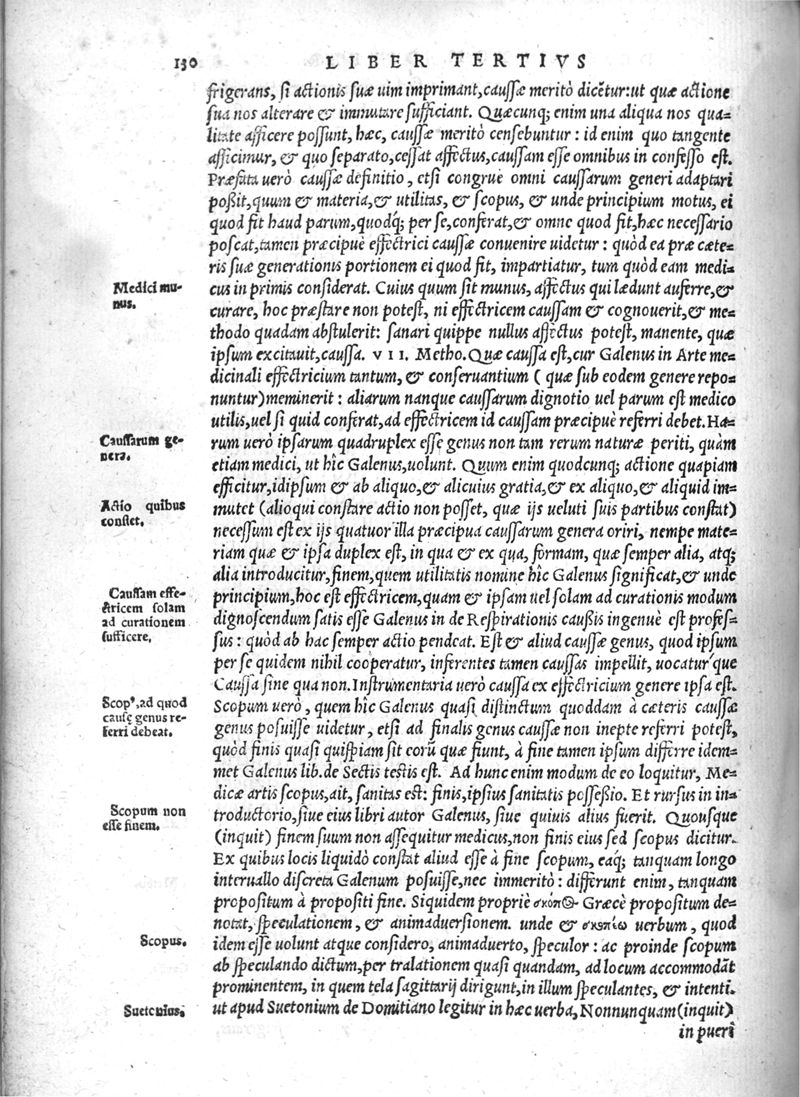 130 LIBER TERTIVS
frigerans, si actionis suæ uim imprimant, caussæ meritò dicẽtur: ut quæ actione
sua nos alterare & immutare sufficiant. Quæcunq; enim una aliqua nos qua=
litate afficere possunt, hæc, caussæ meritò censebuntur: id enim quo tangente
afficimur, & quo separato, cessat affectus, caussam esse omnibus in confesso est.
Præfata uerò caussæ definitio, etsi congruè omni caussarum generi adaptari
possit, quum & materia, & utilitas, & scopus, & unde principium motus, ei
quod fit haud parum, quodq; per se, conferat, & omne quod fit, hæc necessario
poscat, tamen præcipuè effectrici caussæ conuenire uidetur: quòd ea præ cæte=
ris suæ generationis portionem ei quod fit, impartiatur, tum quòd eam medi=
Medici mu=
nus.
cus in primis considerat. Cuius quum sit munus, affectus qui lædunt auferre, &
curare, hoc præstare non potest, ni effectricem caussam & cognouerit, & me=
thodo quadam abstulerit: sanari quippe nullus affectus potest, manente, quæ
ipsum excitauit, caussa. VII. Metho. Quæ caussa est, cur Galenus in Arte me=
dicinali effectricium tantum, & conseruantium ( quæ sub eodem genere repo=
nuntur) meminerit: aliarum nanque caussarum dignotio uel parum est medico
utilis, uel si quid conferat, ad effectricem id caussam præcipuè referri debet. Ha=
Caussarum ge-
nera.
rum uerò ipsarum quadruplex esse genus non tam rerum naturæ periti, quàm
etiam medici, ut hîc Galenus, uolunt. Quum enim quodcunq; actione quapiam
efficitur, idipsum & ab aliquo, & alicuius gratia, & ex aliquo, & aliquid im=
Actio quibus
constet.
mutet (alioqui constare actio non posset, quæ ijs ueluti suis partibus constat)
necessum est ex ijs quatuor illa præcipua caussarum genera oriri, nempe mate=
riam quæ & ipsa duplex est, in qua & ex qua, formam, quæ semper alia, atq;
alia introducitur, finem, quem utilitatis nomine hîc Galenus significat, & unde
Caussam effe-
ctricem solam
ad curationem
sufficere.
principium, hoc est effectricem, quam & ipsam uel solam ad curationis modum
dignoscendum satis esse Galenus in de Respirationis caussis ingenuè est profes=
sus: quòd ab hac semper actio pendeat. Est & aliud caussæ genus, quod ipsum
per se quidem nihil cooperatur, inferentes tamen caussas impellit, uocatur'que
Caussa sine qua non. Instrumentaria uerò caussa ex effectricium genere ipsa est.
Scop⁹, ad quod
causę genus re-
ferri debeat.
Scopum uerò, quem hic Galenus quasi distinctum quoddam à cæteris caussæ
genus posuisse uidetur, etsi ad finalis genus caussæ non inepte referri potest,
quòd finis quasi quispiam sit eorũ quæ fiunt, à fine tamen ipsum differre idem=
met Galenus lib. de Sectis testis est. Ad hunc enim modum de eo loquitur, Me=
dicæ artis scopus, ait, sanitas est: finis, ipsius sanitatis possessio. Et rursus in in=
Scopum non
esse finem.
troductorio, siue eius libri autor Galenus, siue quiuis alius fuerit. Quousque
(inquit) finem suum non assequitur medicus, non finis eius sed scopus dicitur.
Ex quibus locis liquidò constat aliud esse à fine scopum, eaq; tanquam longo
interuallo discreta Galenum posuisse, nec immeritò: differunt enim, tanquam
propositum à propositi fine. Siquidem propriè σκόπ⊙ Græcè propositum de=
notat, speculationem, & animaduersionem. unde & σκοπέω uerbum, quod
Scopus.
idem esse uolunt atque considero, animaduerto, speculor: ac proinde scopum
ab speculando dictum, per tralationem quasi quandam, ad locum accommodãt
prominentem, in quem tela sagittarij dirigunt, in illum speculantes, & intenti.
Suetonius.
ut apud Suetonium de Domitiano legitur in hæc uerba, Nonnunquam (inquit)
in pueri